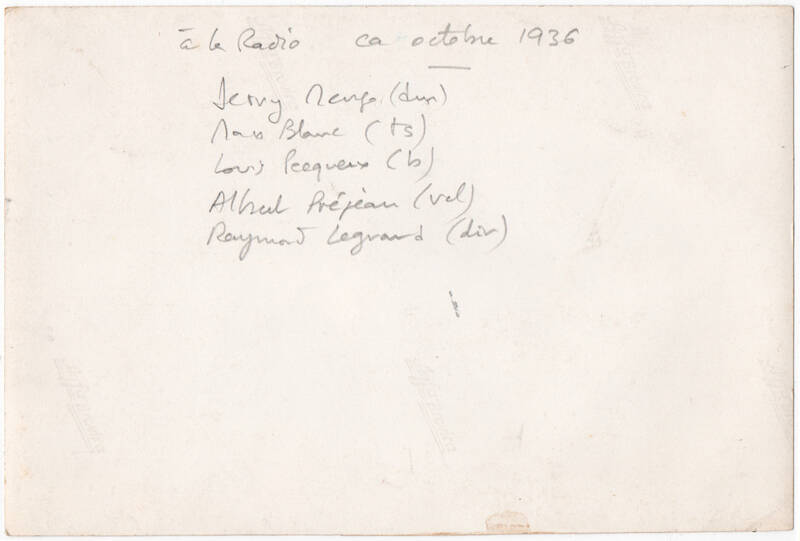 à la Radio ca octobre 1936
Jerry Mengo (dm)
Max Blanc (ts)
Louis Pecqueux (b)
Albert Préjean (vcl)
Raymond Legrand (dir)